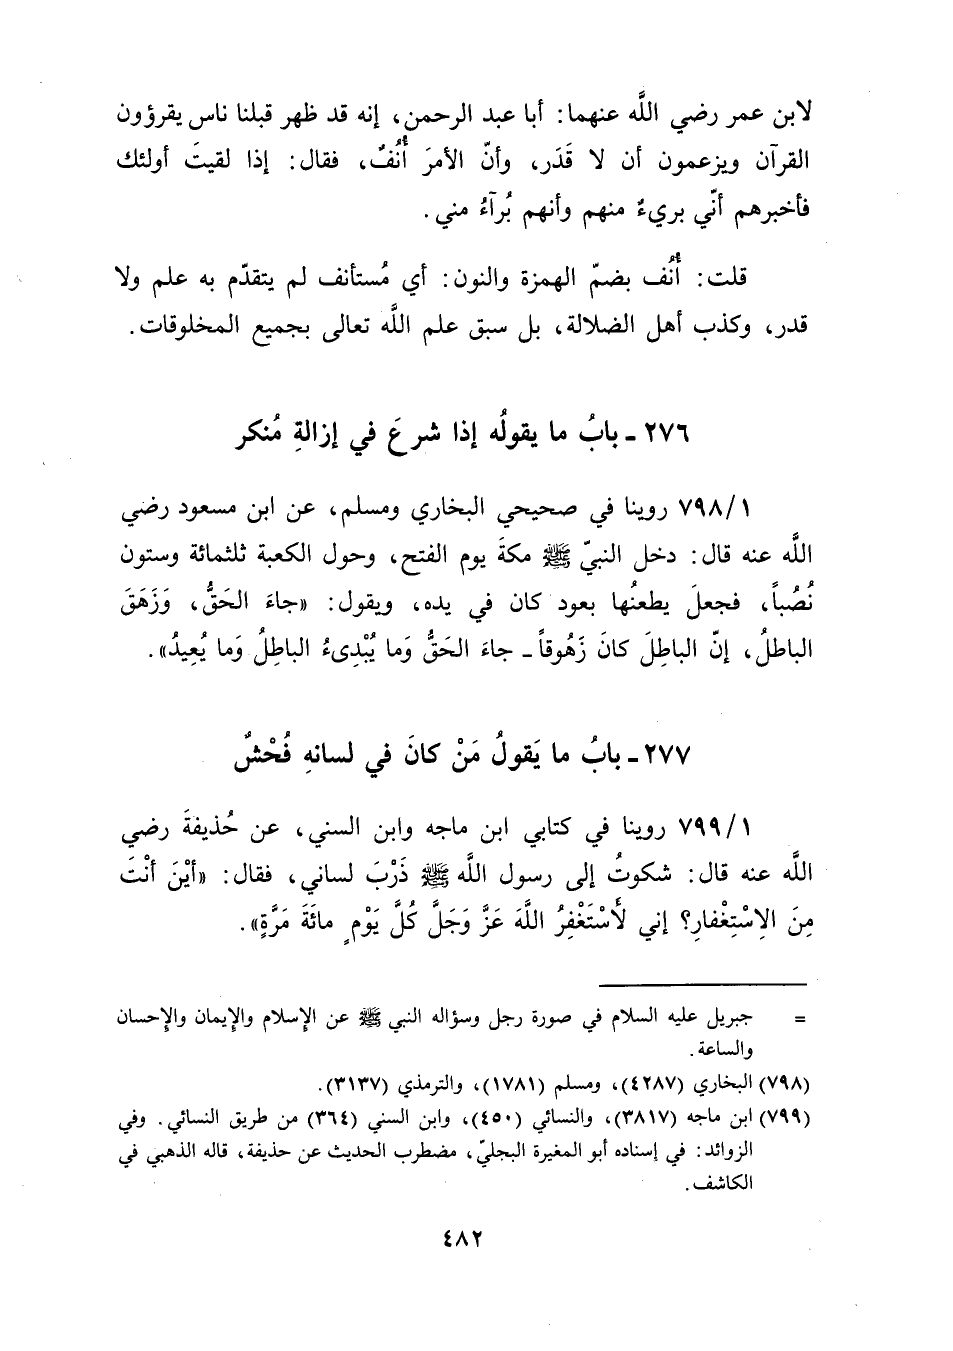 لابن عمر رضي اللَّه عنهما: أبا عبد الرحمن، إنه قد ظهر قبلنا ناس يقرؤون
القرآن ويزعمون أن لا قَدَر، وأنّ الأمرَ أُنُفٌ، فقال: إذا لقيتَ أولئك
فأخبرهم أنّي بريءٌ منهم وأنهم بُرآءُ مني.
قلت: أُنُف بضمّ الهمزة والنون: أي مُستأنف لم يتقدّم به علم ولا
قدر، وكذب أهل الضلالة، بل سبق علم اللَّه تعالى بجميع المخلوقات.
٢٧٦ - بابُ ما يقولُه إذا شرعَ في إزالةِ مُنكر
٧٩٨/١ روينا في صحيحي البخاري ومسلم، عن ابن مسعود رضي
اللَّه عنه قال: دخل النبيّ ﷺ مكةَ يوم الفتح، وحول الكعبة ثلثمائة وستون
نُصُباً، فجعلَ يطعنُها بعود كان في يده، ويقول: «جاءَ الحَقُّ، وَزَهَقَ
الباطلُ، إنّ الباطِلَ كانَ زَهُوقاً - جاءَ الحَقُّ وَما يُبْدِىءُ الباطِلُ وَما يُعِيدُ».
٢٧٧ - بابُ ما يَقولُ مَنْ كانَ في لسانهِ فُحْشٌ
٧٩٩/١ روينا في كتابي ابن ماجه وابن السني، عن حُذيفةَ رضي
اللَّه عنه قال: شكوتُ إلى رسول اللَّه ﷺ ذَرْبَ لساني، فقال: «أيْنَ أنْتَ
مِنَ الاِسْتِغْفارِ؟ إني لأَسْتَغْفِرُ اللَّهَ عَزَّ وَجَلَّ كُلَّ يَوْمٍ مائَةَ مَرَّةٍ».
= جبريل عليه السلام في صورة رجل وسؤاله النبي ﷺ عن الإسلام والإيمان والإحسان
والساعة.
(٧٩٨) البخاري (٤٢٨٧)، ومسلم (١٧٨١)، والترمذي (٣١٣٧).
(٧٩٩) ابن ماجه (٣٨١٧)، والنسائي (٤٥٠)، وابن السني (٣٦٤) من طريق النسائي. وفي
الزوائد: في إسناده أبو المغيرة البجليّ، مضطرب الحديث عن حذيفة، قاله الذهبي في
الكاشف.
٤٨٢